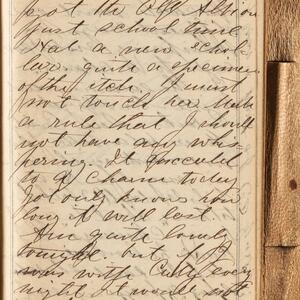 just school time
Had a new schol
lar. quite a specimen
of the itch. I must
not touch her. Made
a rule that I should
not have any whis-
pering. It succeeded
to a charm today
God only knows how
long it will last.
Am quite lonely
tonight. but if I
was with Cully every
night it would not